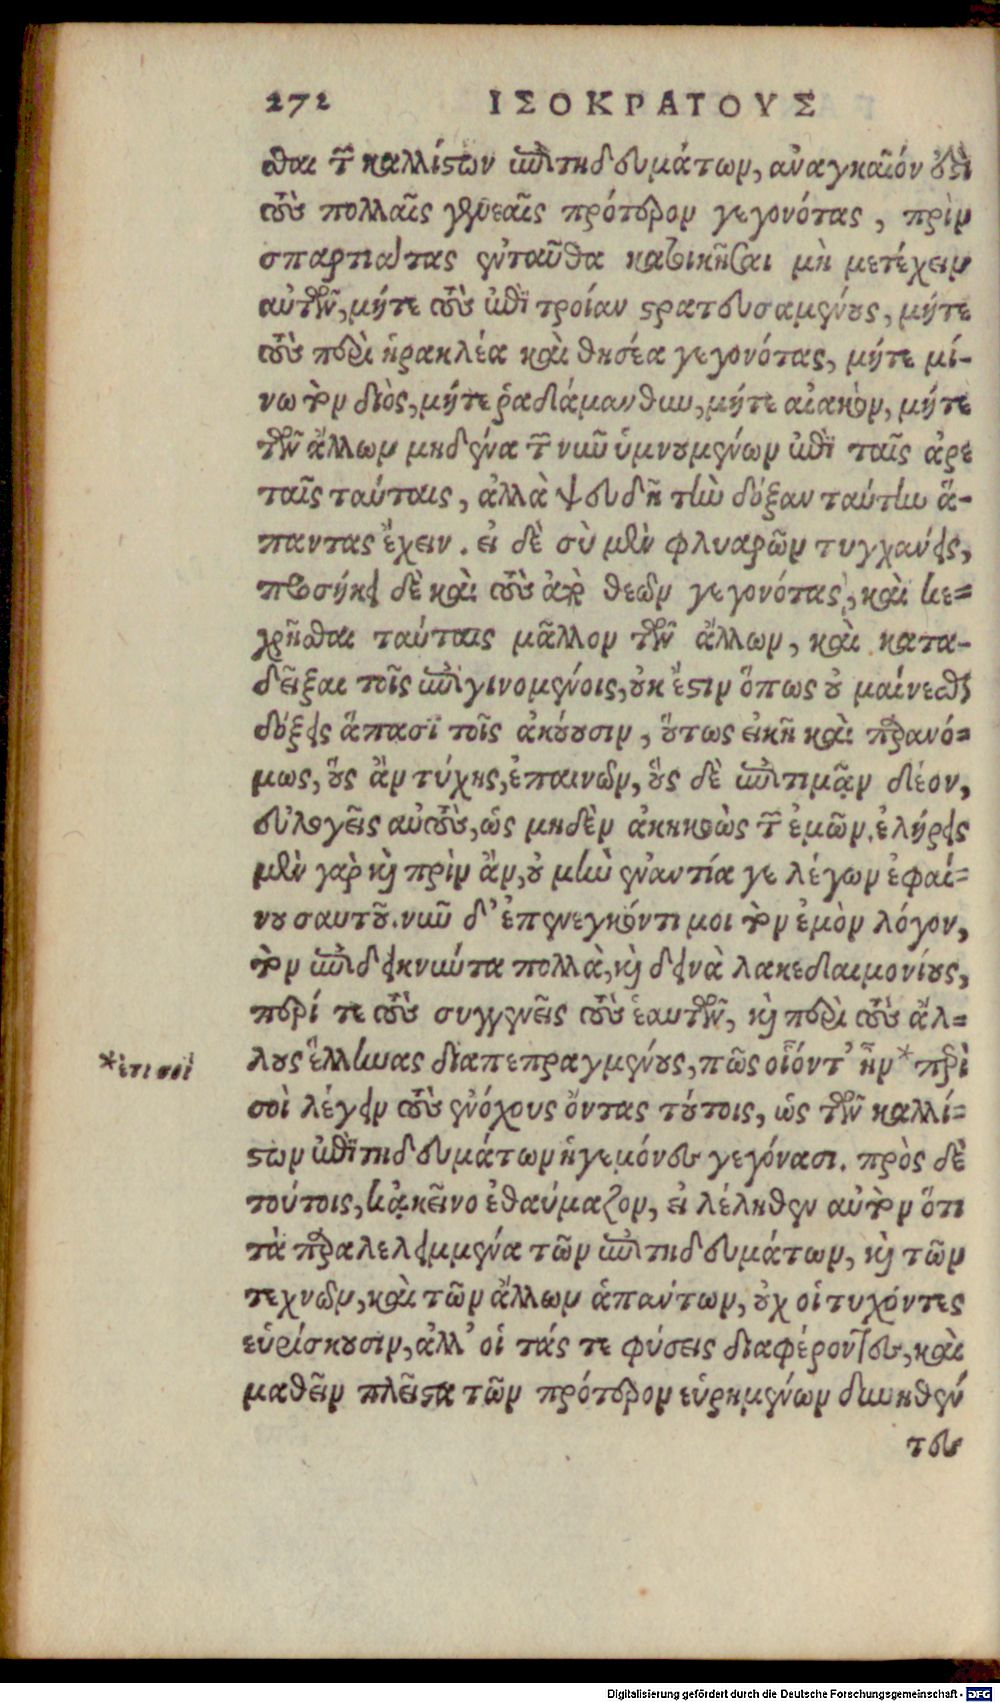 272 ΙΣΟΚΡΑΤΟΥΣ
σθαι τῶν καλλίστων ἐπιτηδευμάτων, ἀναγκαῖόν ἐστι
τοὺς πολλαῖς γενεαῖς πρότερον γεγονότας, πρὶν
σπαρτιάτας ἐνταῦθα κατοικῆσαι μὴ μετέχειν
αὐτῶν, μήτε τοὺς ἐπὶ τροίαν στρατευσαμένους, μήτε
τοὺς περὶ ἡρακλέα καὶ θησέα γεγονότας, μήτε μί-
νω τὸν διὸς, μήτε ῥαδιάμανθυν, μήτε αἰακὸν, μήτε
τῶν ἄλλων μηδένα τῶν νῦν ὑμνουμένων ἐπὶ ταῖς ἀρε
ταῖς ταύταις, ἀλλὰ ψευδῆ τὴν δόξαν ταύτην ἅ-
παντας ἔχειν. εἰ δὲ σὺ μὲν φλυαρῶν τυγχάνεις,
προσήκει δὲ καὶ τοὺς ἀπὸ θεῶν γεγονότας, καὶ κε-
χρῆσθαι ταύταις μᾶλλον τῶν ἄλλων, καὶ κατα-
δεῖξαι τοῖς ἐπιγινομένοις, οὐκ ἔστιν ὅπως οὐ μαίνεσθαι
δόξεις ἅπασι τοῖς ἀκούουσιν, οὕτως εἰκῆ καὶ παρανό-
μως, οὓς ἂν τύχῃς, ἐπαινῶν, οὓς δὲ ἐπιτιμᾷν δέον,
εὐλογεῖς αὐτοὺς, ὡς μηδὲν ἀκηκοὼς τῶν ἐμῶν. ἐλήρεις
μὲν γὰρ καὶ πρὶν ἂν, οὐ μὴν ἐναντία γε λέγων ἐφαί-
νου σαυτοῦ. νῦν δ' ἐπενεγκόντι μοι τὸν ἐμὸν λόγον,
τὸν ἐπιδεικνύντα πολλὰ, καὶ δεινὰ λακεδαιμονίους,
περί τε τοὺς συγγενεῖς τοὺς ἑαυτῶν, καὶ περὶ τοὺς ἄλ-
λους ἕλληνας διαπεπραγμένους, πῶς οἷόντ' ἦν * περὶ
*ἔτι σοί
σοὶ λέγειν τοὺς ἐνόχους ὄντας τούτοις, ὡς τῶν καλλί-
στων ἐπιτηδευμάτων ἡγεμόνες γεγόνασι. πρὸς δὲ
τούτοις, κᾀκεῖνο ἐθαύμαζον, εἰ λέληθεν αὐτὸν ὅτι
τὰ παραλελειμμένα τῶν ἐπιτηδευμάτων, καὶ τῶν
τεχνῶν, καὶ τῶν ἄλλων ἁπάντων, οὐχ οἱ τυχόντες
εὑρίσκουσιν, ἀλλ' οἱ τάς τε φύσεις διαφέροντες, καὶ
μαθεῖν πλεῖστα τῶν πρότερον εὑρημένων δυνηθέν
τες
Digitalisierung gefördert durch die Deutsche Forschungsgemeinschaft - DFG